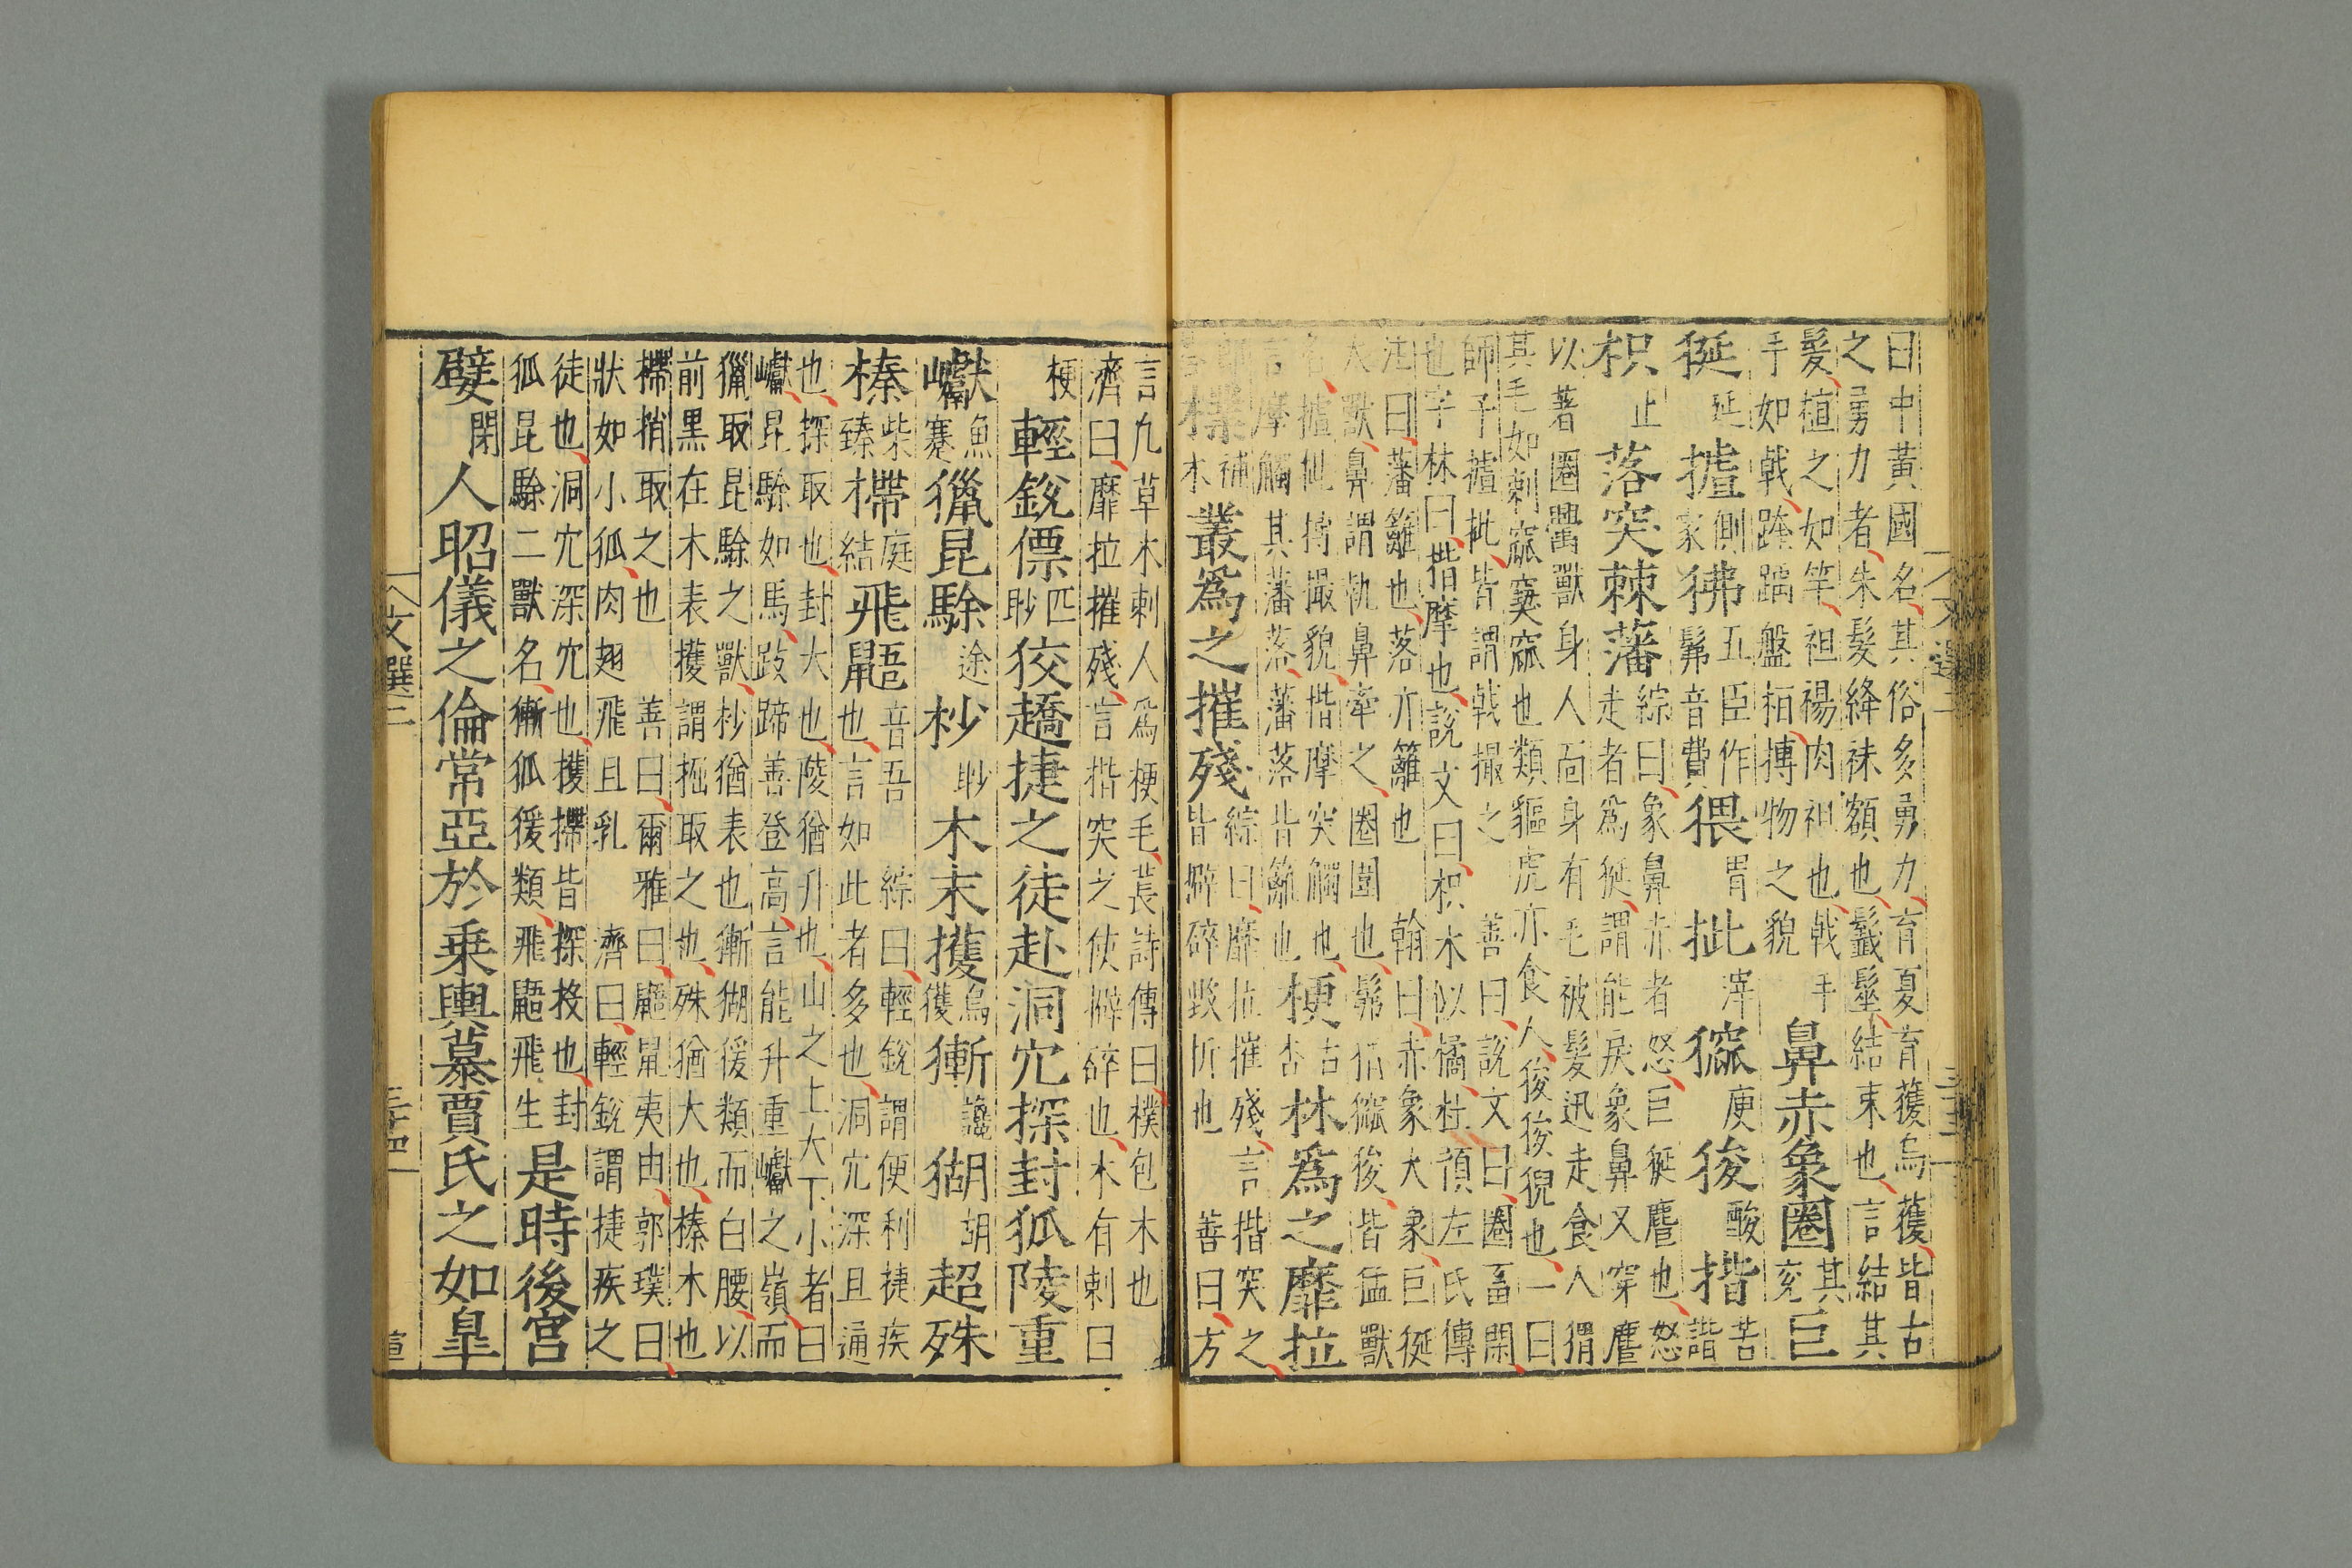 曰中黃國名其俗多勇力育夏育獲烏獲皆古
之勇力者朱髮絳袜額也鬛髽結束也言結其
髮植之如竿袒裼肉袒也戟手
手如戟踡跼盤栢搏物之貌
鼻赤象圈其兖巨
狿延摣側家狒五臣作髴音費猥胃批滓㺄庾狻酸揩苦諧
枳止落突棘藩
綜曰象鼻赤者怒巨狿麐也怒
走者爲狿謂能戾象鼻又穿麐
以著圈獸身人面身有毛被髮迅走食人猬
其毛如刺窳窫窳也類貙虎亦食人狻狻猊也一曰
師子摣批皆謂戟撮之 善曰說文曰圈畜閑
也字林曰揩摩也說文曰枳木似橘杜預左氏傳
注曰藩籬也落亦籬也 翰曰赤象大象巨狿
大獸鼻謂執鼻牽之圈圍也髴猬㺄狻皆猛獸
名摣批搏撮貌揩摩突觸也
言摩觸其藩落藩落皆籬也
梗古杏林爲之靡拉
樸補木叢爲之摧殘
綜曰靡拉摧殘言揩突之
皆擗碎毀折也 善曰方
言九草木刺人爲梗毛萇詩傳曰樸包木也
濟曰靡拉摧殘言揩突之使擗碎也木有刺曰
梗 輕銳僄匹眇狡趫捷之徒赴洞穴探封狐陵重
巘魚蹇獵昆駼途杪眇木末擭烏獲獑讒猢胡超殊
榛柴臻㨮庭結飛鼯音吾
綜曰輕銳謂便利捷疾
也言如此者多也洞穴深且通
也探取也封大也陵猶升也山之上大下小者曰
巘昆駼如馬跂蹄善登高言能升重巘之嶺而
獵取昆駼之獸杪猶表也獑猢猨類而白腰以
前黑在木表擭謂掘取之也殊猶大也榛木也
㨮捎取之也 善曰爾雅曰鼯鼠夷由郭璞曰
狀如小狐肉翅飛且乳 濟曰輕銳謂捷疾之
徒也洞穴深穴也擭㨮皆探投也封
狐昆駼二獸名獑狐猨類飛鼯飛生
是時後宮
嬖閑人昭儀之倫常亞於乗輿慕賈氏之如臯
文選二
三十四